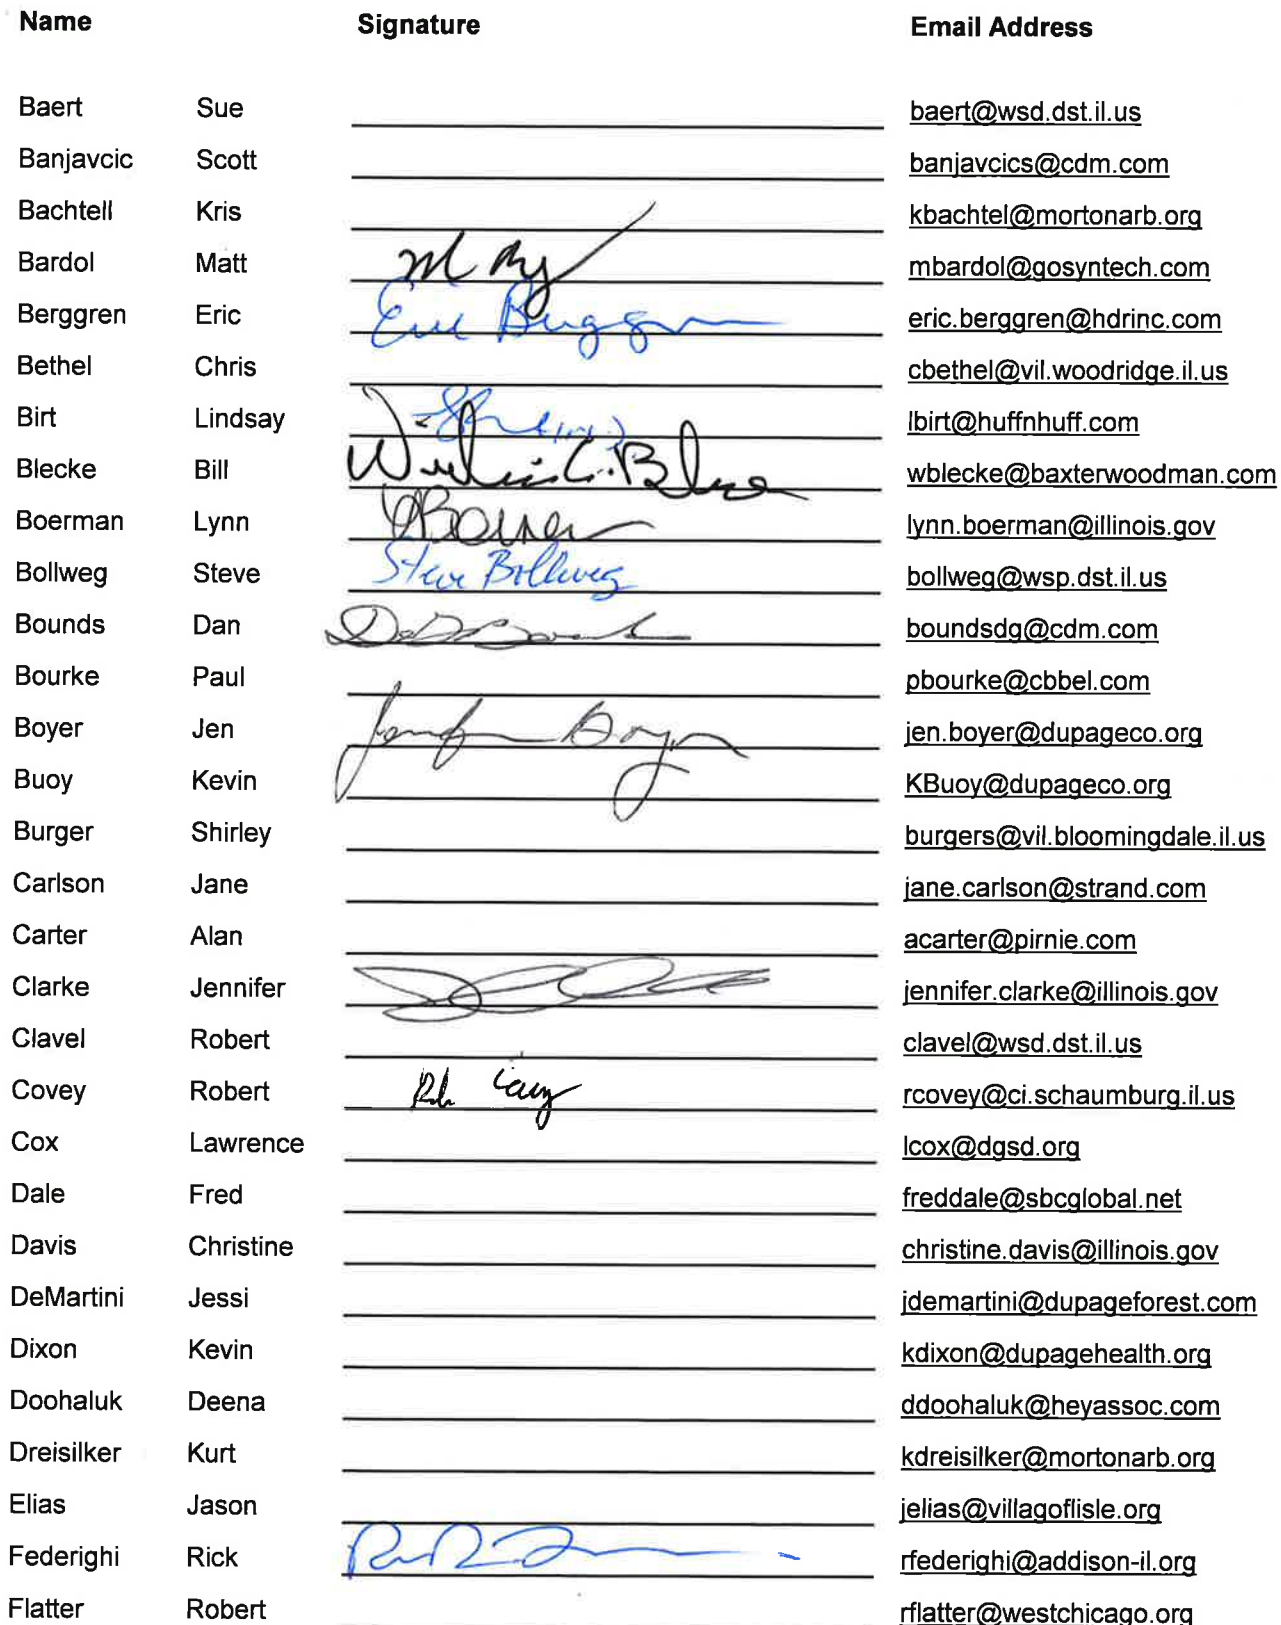 Name Signature Email Address
Baert Sue baert@wsd.dst.il.us
Banjavcic Scott banjavcics@cdm.com
Bachtell Kris kbachtel@mortonarb.org
Bardol Matt mbardol@gosyntech.com
Berggren Eric Eric Berggren eric.berggren@hdrinc.com
Bethel Chris cbethel@vil.woodridge.il.us
Birt Lindsay lbirt@huffnhuff.com
Blecke Bill William C. Blecke wblecke@baxterwoodman.com
Boerman Lynn lynn.boerman@illinois.gov
Bollweg Steve Steve Bollweg bollweg@wsp.dst.il.us
Bounds Dan boundsdg@cdm.com
Bourke Paul pbourke@cbbel.com
Boyer Jen Jennifer Boyer jen.boyer@dupageco.org
Buoy Kevin KBuoy@dupageco.org
Burger Shirley burgers@vil.bloomingdale.il.us
Carlson Jane jane.carlson@strand.com
Carter Alan acarter@pirnie.com
Clarke Jennifer jennifer.clarke@illinois.gov
Clavel Robert clavel@wsd.dst.il.us
Covey Robert rcovey@ci.schaumburg.il.us
Cox Lawrence lcox@dgsd.org
Dale Fred freddale@sbcglobal.net
Davis Christine christine.davis@illinois.gov
DeMartini Jessi jdemartini@dupageforest.com
Dixon Kevin kdixon@dupagehealth.org
Doohaluk Deena ddoohaluk@heyassoc.com
Dreisilker Kurt kdreisilker@mortonarb.org
Elias Jason jelias@villagoflisle.org
Federighi Rick rfederighi@addison-il.org
Flatter Robert rflatter@westchicago.org